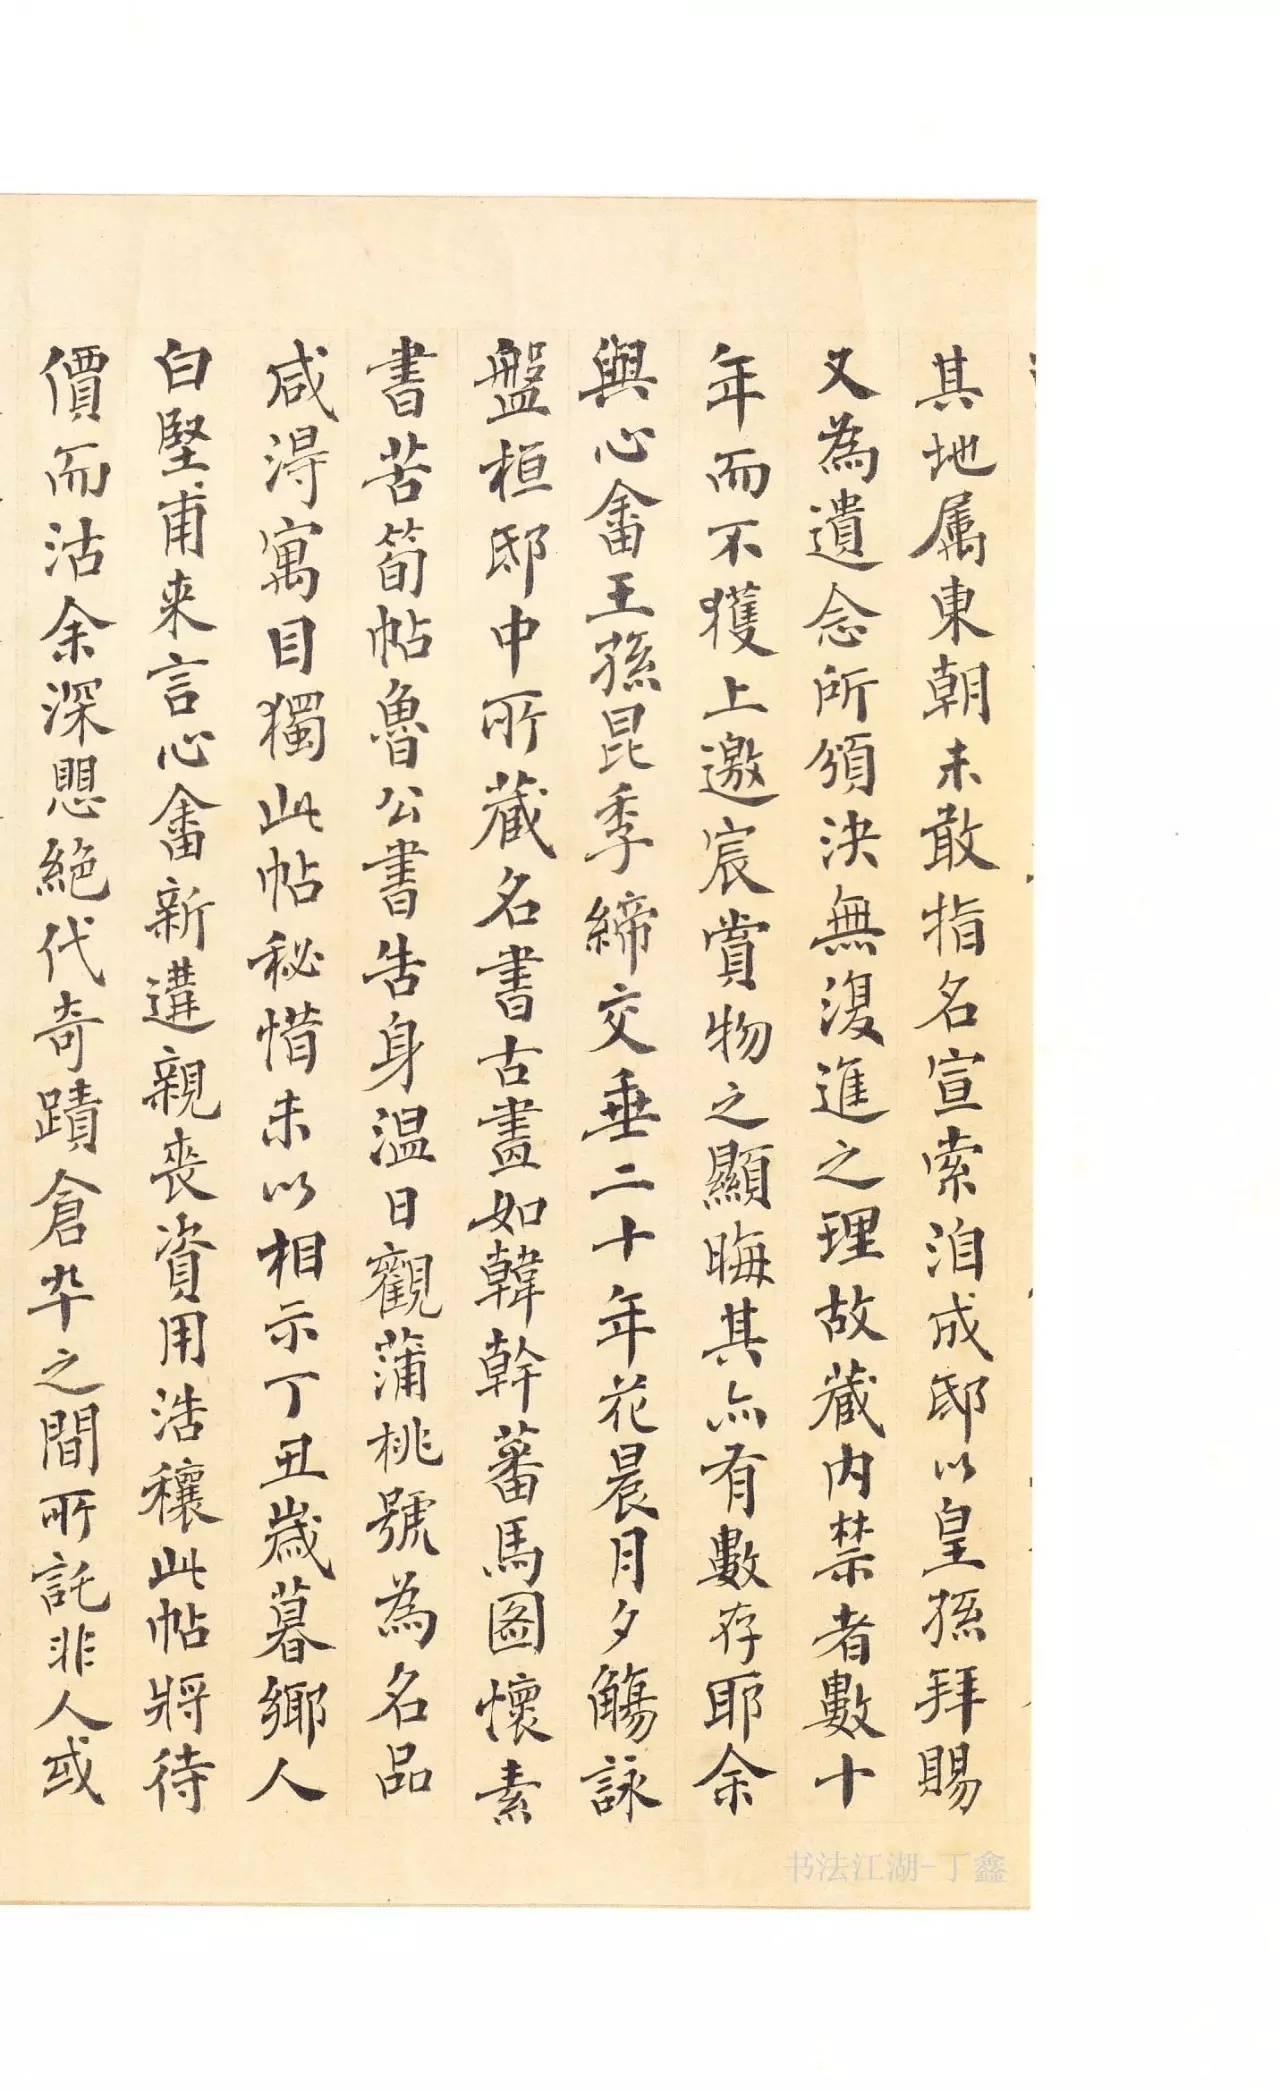 其地属東朝未敢指名宣索洎成邸以皇孫拜賜
又為遺念所頒決無復進之理故藏内禁者數十
年而不獲上邀宸賞物之顯晦其亦有數存耶余
與心畬王孫昆季締交垂二十年花晨月夕觴詠
盤桓邸中所藏名書古畫如韓幹蕃馬圖懷素
書苦筍帖魯公書告身温日觀蒲桃號為名品
咸得寓目獨此帖秘惜未以相示丁丑歲暮鄉人
白堅甫来言心畬新遘親喪資用浩穰此帖將待
價而沽余深恐絕代奇蹟倉卒之間所託非人或
书法江湖-丁鑫